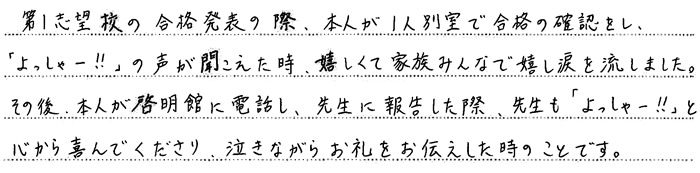 第1志望校の合格発表の際、本人が1人別室で合格の確認をし、
「よっしゃー!!」の声が聞こえた時、嬉しくて家族みんなで嬉し涙を流しました。
その後、本人が啓明館に電話し、先生に報告した際、先生も「よっしゃー!!」と
心から喜んでくださり、泣きながらお礼をお伝えした時のことです。